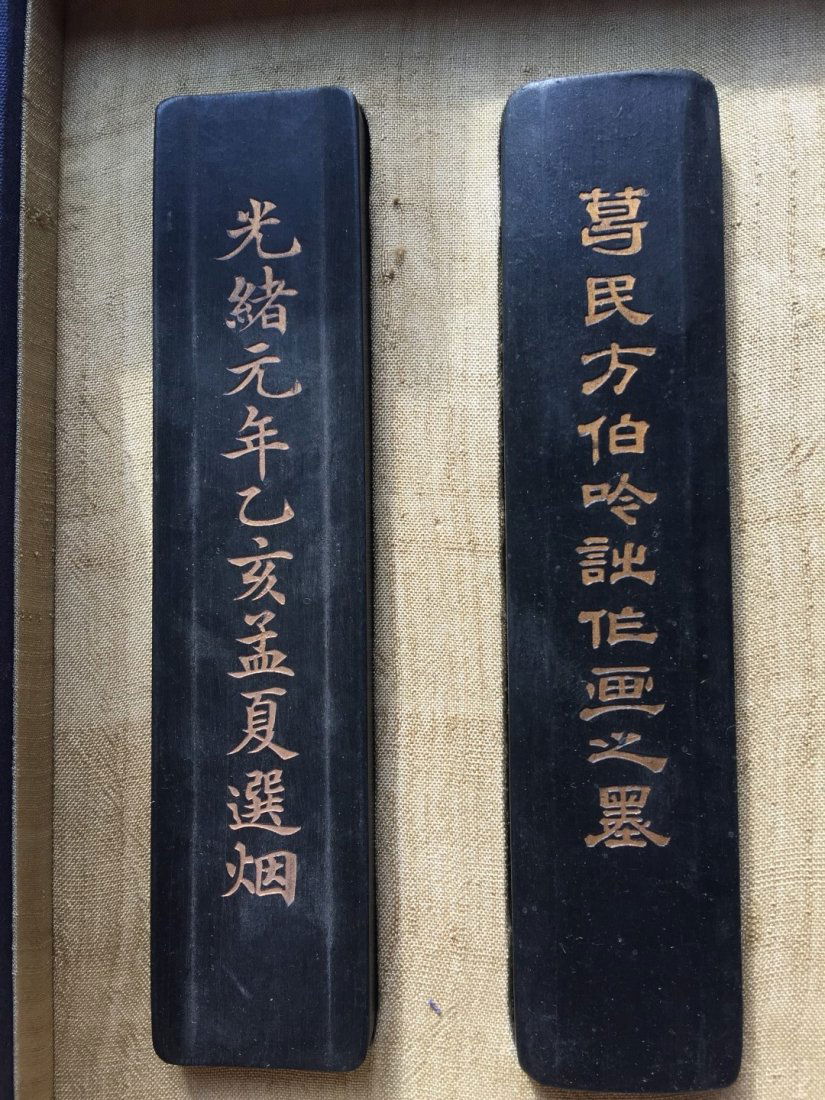 葛民方伯吟詩作画之墨
光緒元年乙亥孟夏選烟